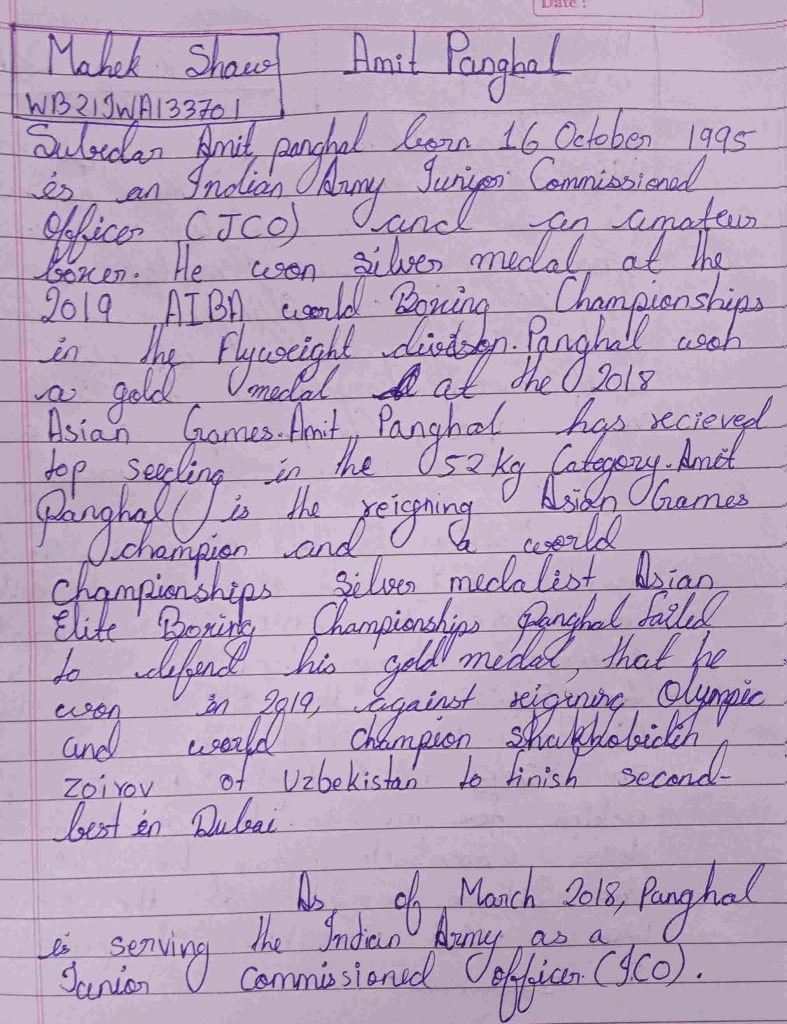 Date :
Mahek Shaw
Amit Panghal
WB21JWA133701
Subedar Amit panghal born 16 October 1995
is an Indian Army Junior Commissioned
Officer (JCO) and an amateur
boxer. He won silver medal at the
2019 AIBA world Boxing Championships
in the Flyweight division. Panghal won
a gold medal at the 2018
Asian Games. Amit Panghal has recieved
top seeding in the 52 kg Category. Amit
Panghal is the reigning Asian Games
champion and a world
championships silver medalist Asian
Elite Boxing Championships Panghal failed
to defend his gold medal, that he
won in 2019, against reigning Olympic
and world champion Shakhobidin
Zoirov of Uzbekistan to finish second-
best in Dubai
As of March 2018, Panghal
is serving the Indian Army as a
Junior Commissioned officer. (JCO).